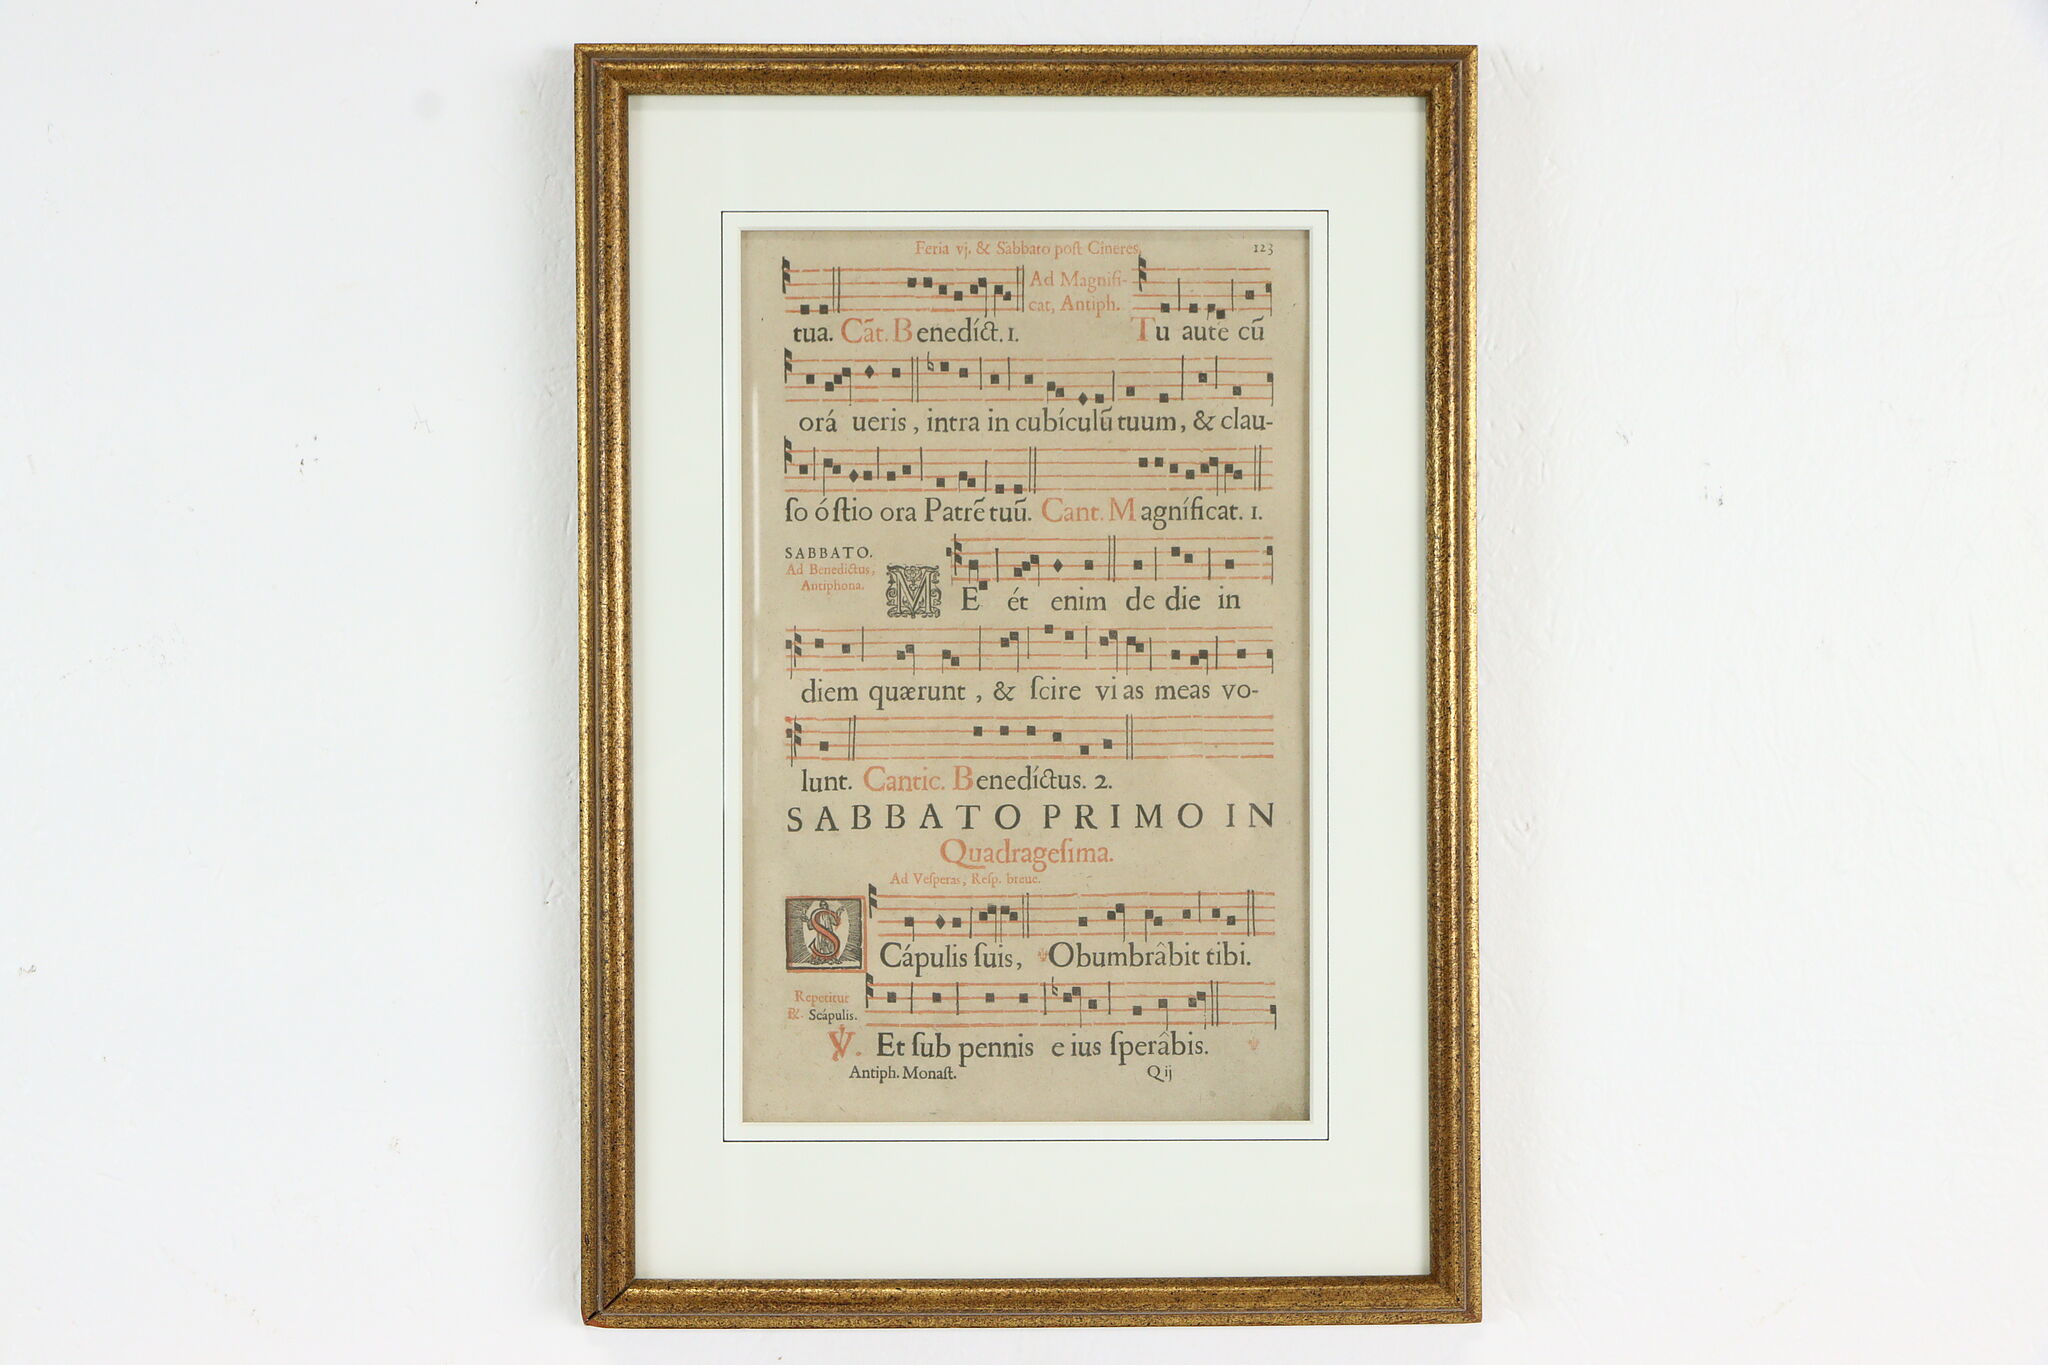 Feria vj. & Sabbato poſt Cineres, 123
Ad Magnifi-
cat, Antiph.
tua. Cãt. Benedíct. 1. Tu autẽ cũ
orá ueris, intra in cubículũ tuum, & clau-
ſo óſtio ora Patrẽ tuũ. Cant. Magníficat. 1.
SABBATO.
Ad Benedictus,
Antiphona.
ME ét enim de die in
diem quærunt, & ſcire vi as meas vo-
lunt. Cantic. Benedíctus. 2.
SABBATO PRIMO IN
Quadrageſima.
Ad Veſperas, Reſp. breue.
SCápulis ſuis, Obumbrâbit tibi.
Repetitur
℟. Scápulis.
℣. Et ſub pennis e ius ſperâbis.
Antiph. Monaſt. Q ij